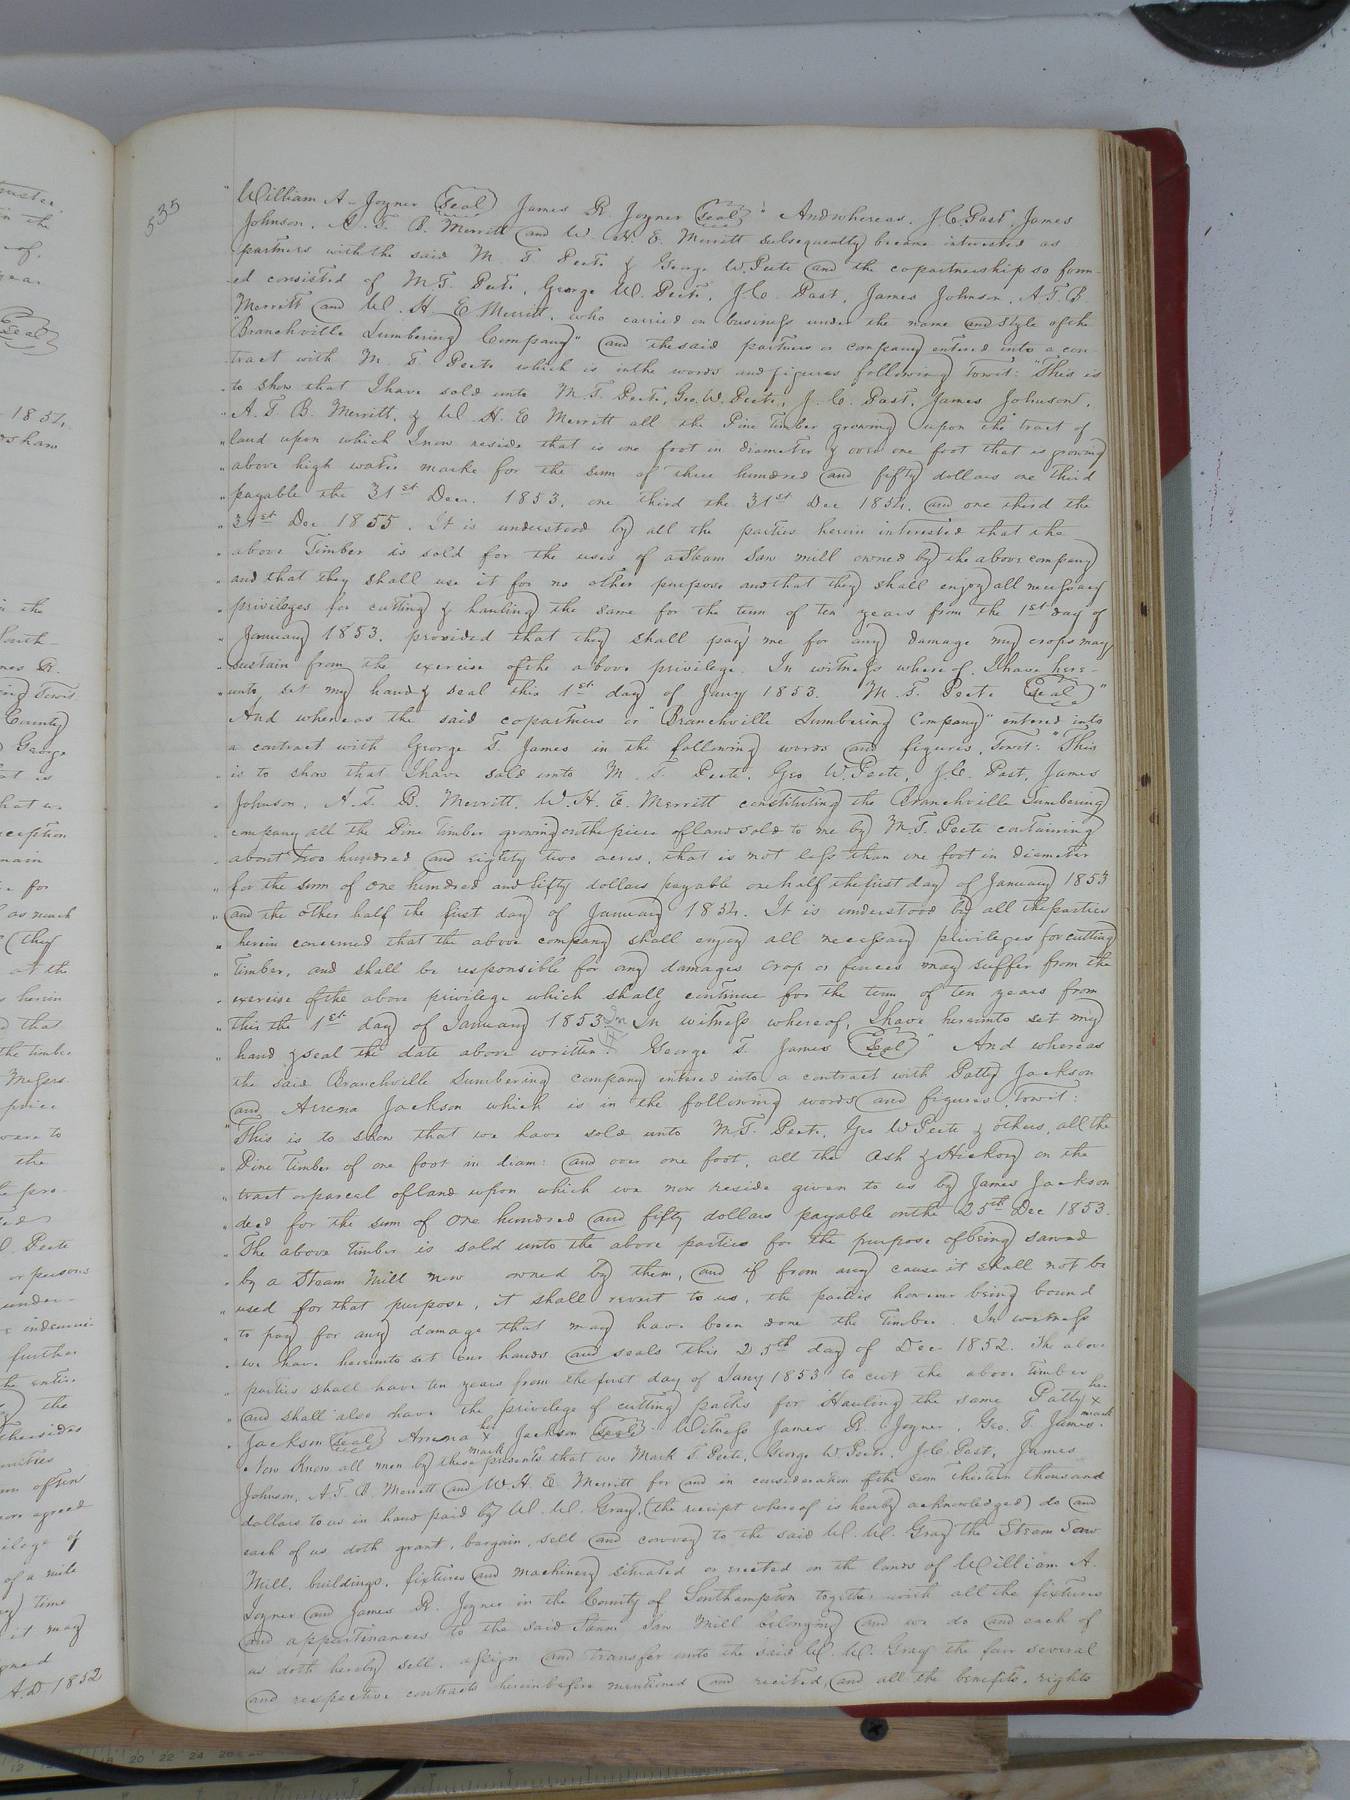 535
"William A. Joyner (Seal) James R. Joyner (Seal)" And whereas, J. C. Past, James
Johnson, A. T. B. Merritt and W. H. E. Merritt subsequently became interested as
partners with the said M. T. Peete & George W. Peete and the copartnership so form-
ed consisted of M. T. Peete, George W. Peete, J. C. Past, James Johnson, A. T. B.
Merritt and W. H. E. Merritt, who carried on business under the name and style of the
"Branchville Lumbering Company" and the said partners or company entered into a con-
tract with M. T. Peete which is in the words and figures following Towit: "This is
to show that I have sold unto M. T. Peete, Geo. W. Peete, J. C. Past, James Johnson,
A. T. B. Merritt, & W. H. E. Merritt all the Pine Timber growing upon the tract of
land upon which I now reside that is one foot in diameter & over one foot that is growing
above high water marke for the sum of three hundred and fifty dollars one third
payable the 31st Dec. 1853, one third the 31st Dec 1854, and one third the
31st Dec 1855. It is understood by all the parties herein interested that the
above Timber is sold for the uses of a Steam Saw mill owned by the above company
and that they shall use it for no other purpose and that they shall enjoy all necessary
privileges for cutting & hauling the same for the term of ten years from the 1st day of
January 1853. provided that they shall pay me for any damage my crops may
sustain from the exercise of the above privilege. In witness whereof I have here-
unto set my hand & seal this 1st day of Jany 1853. M. T. Peete (Seal)"
And whereas the said copartners or "Branchville Lumbering Company" entered into
a contract with George T. James in the following words and figures, Towit: "This
is to show that I have sold unto M. T. Peete, Geo W. Peete, J. C. Past, James
Johnson, A. T. B. Merritt, W. H. E. Merritt constituting the Branchville Lumbering
company all the Pine Timber growing on the piece of land sold to me by M. T. Peete containing
about two hundred and eighty two acres, that is not less than one foot in diameter
for the sum of one hundred and fifty dollars payable one half the first day of January 1853
and the other half the first day of January 1854. It is understood by all the parties
herein concerned that the above company shall enjoy all necessary privileges for cutting
timber, and shall be responsible for any damages crop or fences may suffer from the
exercise of the above privilege which shall continue for the term of ten years from
this the 1st day of January 1853 In witness whereof, I have hereunto set my
hand & seal the date above written. George T. James (Seal)" And whereas
the said Branchville Lumbering company entered into a contract with Patty Jackson
and Arrena Jackson which is in the following words and figures, Towit:
"This is to show that we have sold unto M. T. Peete, Geo W Peete & others, all the
Pine Timber of one foot in diam: and over one foot, all the Ash & Hickory on the
tract or parcel of land upon which we now reside given to us by James Jackson
decd for the sum of one hundred and fifty dollars payable on the 25th Dec 1853.
The above timber is sold unto the above parties for the purpose of being sawed
by a Steam Mill now owned by them, and if from any cause it shall not be
used for that purpose, it shall revert to us, the parties however being bound
to pay for any damage that may have been done the Timber. In witness
we have hereunto set our hands and seals this 25th day of Dec 1852. The above
parties shall have ten years from the first day of Jany 1853 to cut the above timber
and shall also have the privilege of cutting paths for Hauling the same Patty her X mark
Jackson (Seal) Arrena her X mark Jackson (Seal)" Witness James R. Joyner, Geo. T. James.
Now Know all men by these presents that we Mark T. Peete, George W. Peete, J. C. Past, James
Johnson, A. T. B. Merritt and W. H. E. Merritt for and in consideration of the sum Thirteen thousand
dollars to us in hand paid by W. W. Gray, (the receipt whereof is hereby acknowledged) do and
each of us doth grant, bargain, sell and convey to the said W. W. Gray the Steam Saw
Mill, buildings, fixtures and machinery situated or erected on the lands of William A.
Joyner and James R. Joyner in the County of Southampton together with all the fixtures
and appurtenances to the said Steam Saw Mill belonging and we do and each of
us doth hereby sell, assign and transfer unto the said W. W. Gray the four several
and respective contracts hereinbefore mentioned and recited, and all the benefits, rights